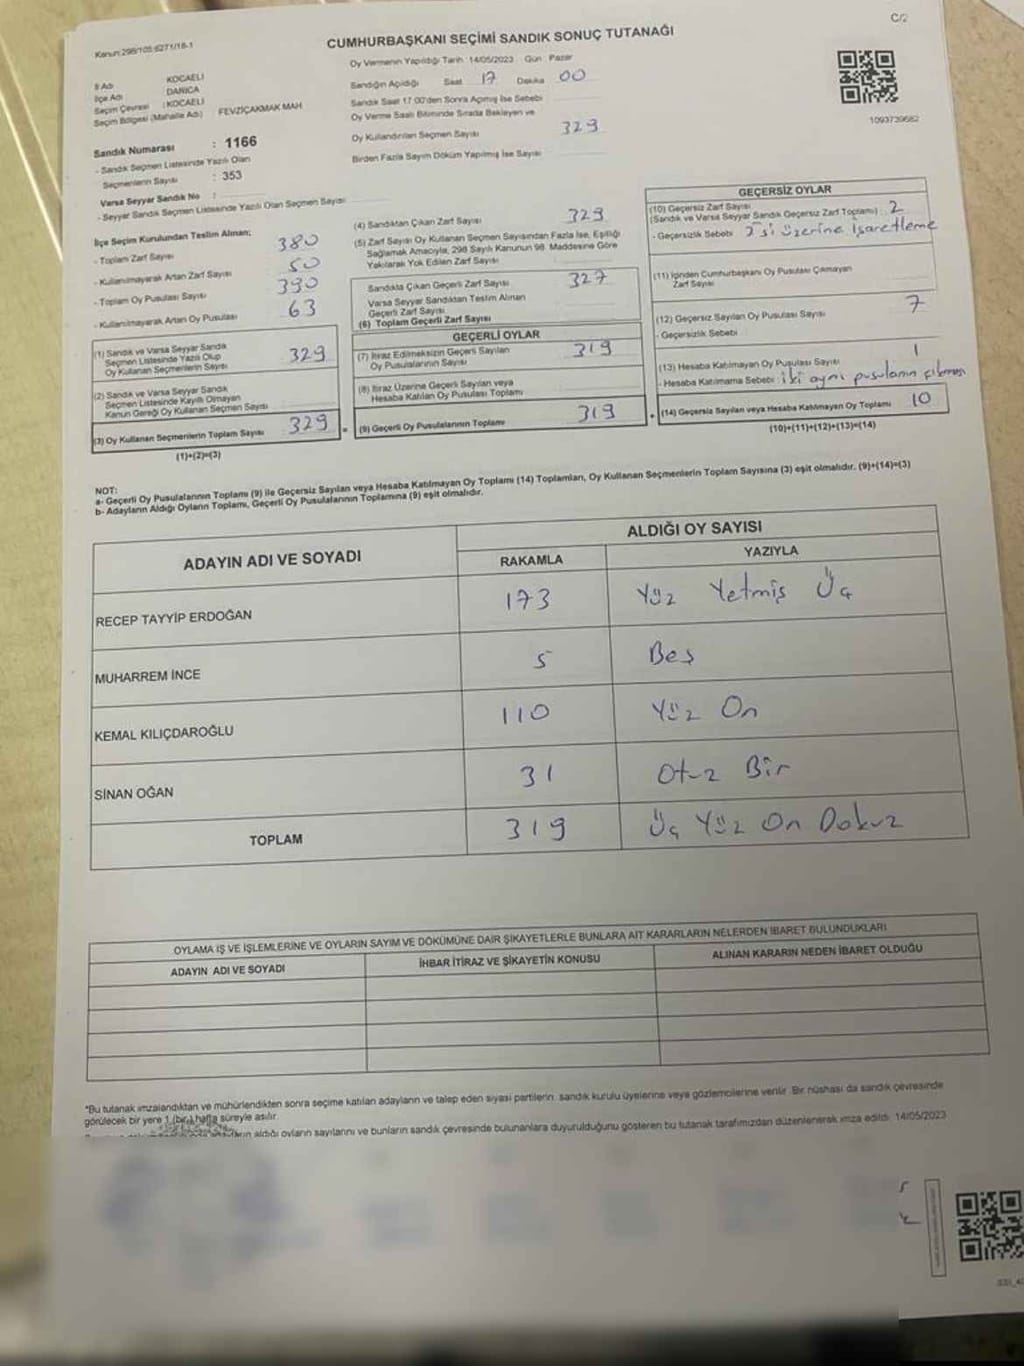 Kanun:298/105:6271/18-1
C/2
CUMHURBAŞKANI SEÇİMİ SANDIK SONUÇ TUTANAĞI
İl Adı KOCAELİ
İlçe Adı DARICA
Seçim Çevresi : KOCAELİ
Seçim Bölgesi (Mahalle Adı) FEVZİÇAKMAK MAH
Sandık Numarası : 1166
- Sandık Seçmen Listesinde Yazılı Olan
Seçmenlerin Sayısı : 353
Varsa Seyyar Sandık No :
- Seyyar Sandık Seçmen Listesinde Yazılı Olan Seçmen Sayısı
Oy Vermenin Yapıldığı Tarih 14/05/2023 Gün Pazar
Sandığın Açıldığı Saat 17 Dakika 00
Sandık Saat 17:00'den Sonra Açılmış İse Sebebi
Oy Verme Saati Bitiminde Sırada Bekleyen ve
Oy Kullandırılan Seçmen Sayısı 329
Birden Fazla Sayım Döküm Yapılmış İse Sayısı
1093739682
İlçe Seçim Kurulundan Teslim Alınan;
- Toplam Zarf Sayısı 380
- Kullanılmayarak Artan Zarf Sayısı 50
- Toplam Oy Pusulası Sayısı 390
- Kullanılmayarak Artan Oy Pusulası 63
(1) Sandık ve Varsa Seyyar Sandık
Seçmen Listesinde Yazılı Olup
Oy Kullanan Seçmenlerin Sayısı 329
(2) Sandık ve Varsa Seyyar Sandık
Seçmen Listesinde Kayıtlı Olmayan
Kanun Gereği Oy Kullanan Seçmen Sayısı
(3) Oy Kullanan Seçmenlerin Toplam Sayısı 329
(1)+(2)=(3)
=
(4) Sandıktan Çıkan Zarf Sayısı 329
(5) Zarf Sayısı Oy Kullanan Seçmen Sayısından Fazla İse, Eşitliği
Sağlamak Amacıyla, 298 Sayılı Kanunun 98. Maddesine Göre
Yakılarak Yok Edilen Zarf Sayısı
Sandıkta Çıkan Geçerli Zarf Sayısı 327
Varsa Seyyar Sandıktan Teslim Alınan
Geçerli Zarf Sayısı
(6) Toplam Geçerli Zarf Sayısı
GEÇERLİ OYLAR
(7) İtiraz Edilmeksizin Geçerli Sayılan
Oy Pusulalarının Sayısı 319
(8) İtiraz Üzerine Geçerli Sayılan veya
Hesaba Katılan Oy Pusulası Toplamı
(9) Geçerli Oy Pusulalarının Toplamı 319
+
GEÇERSİZ OYLAR
(10) Geçersiz Zarf Sayısı
(Sandık ve Varsa Seyyar Sandık Geçersiz Zarf Toplamı) : 2
- Geçersizlik Sebebi 2'si üzerine işaretleme
(11) İçinden Cumhurbaşkanı Oy Pusulası Çıkmayan
Zarf Sayısı
(12) Geçersiz Sayılan Oy Pusulası Sayısı 7
- Geçersizlik Sebebi
(13) Hesaba Katılmayan Oy Pusulası Sayısı 1
- Hesaba Katılmama Sebebi iki aynı pusulanın çıkması
(14) Geçersiz Sayılan veya Hesaba Katılmayan Oy Toplamı 10
(10)+(11)+(12)+(13)=(14)
NOT:
a- Geçerli Oy Pusulalarının Toplamı (9) ile Geçersiz Sayılan veya Hesaba Katılmayan Oy Toplamı (14) Toplamları, Oy Kullanan Seçmenlerin Toplam Sayısına (3) eşit olmalıdır. (9)+(14)=(3)
b- Adayların Aldığı Oyların Toplamı, Geçerli Oy Pusulalarının Toplamına (9) eşit olmalıdır.
ADAYIN ADI VE SOYADI
ALDIĞI OY SAYISI
RAKAMLA YAZIYLA
RECEP TAYYİP ERDOĞAN 173 Yüz Yetmiş Üç
MUHARREM İNCE 5 Beş
KEMAL KILIÇDAROĞLU 110 Yüz On
SİNAN OĞAN 31 Otuz Bir
TOPLAM 319 Üç Yüz On Dokuz
OYLAMA İŞ VE İŞLEMLERİNE VE OYLARIN SAYIM VE DÖKÜMÜNE DAİR ŞİKAYETLERLE BUNLARA AİT KARARLARIN NELERDEN İBARET BULUNDUKLARI
ADAYIN ADI VE SOYADI İHBAR İTİRAZ VE ŞİKAYETİN KONUSU ALINAN KARARIN NEDEN İBARET OLDUĞU
*Bu tutanak imzalandıktan ve mühürlendikten sonra seçime katılan adayların ve talep eden siyasi partilerin sandık kurulu üyelerine veya gözlemcilerine verilir. Bir nüshası da sandık çevresinde
görülecek bir yere 1 (bir) hafta süreyle asılır.
aldığı oyların sayılarını ve bunların sandık çevresinde bulunanlara duyurulduğunu gösteren bu tutanak tarafımızdan düzenlenerek imza edildi. 14/05/2023